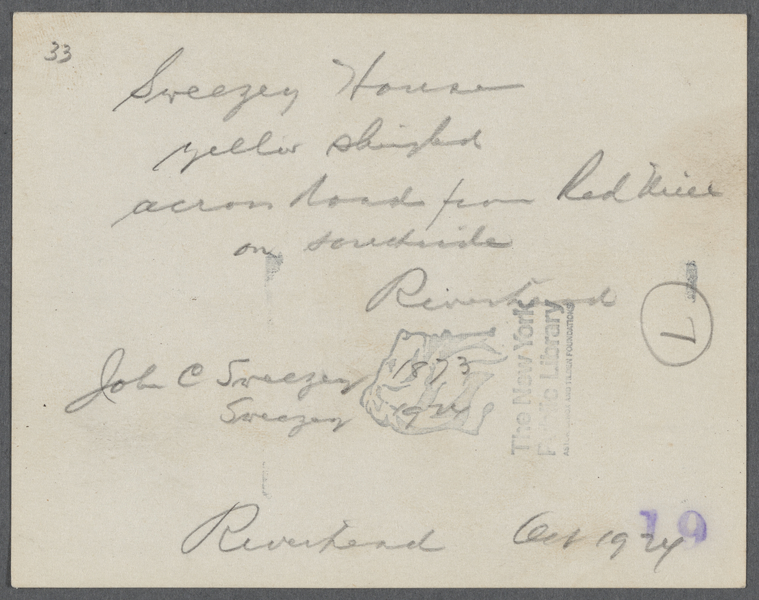 33
Sweezey House
yellow shingled
across road from Red Mill
on southside
Riverhead
L
John C Sweezey 1873
Sweezey 1924
The New York
Public Library
ASTOR, LENOX AND TILDEN FOUNDATIONS
Riverhead Oct 1924
19